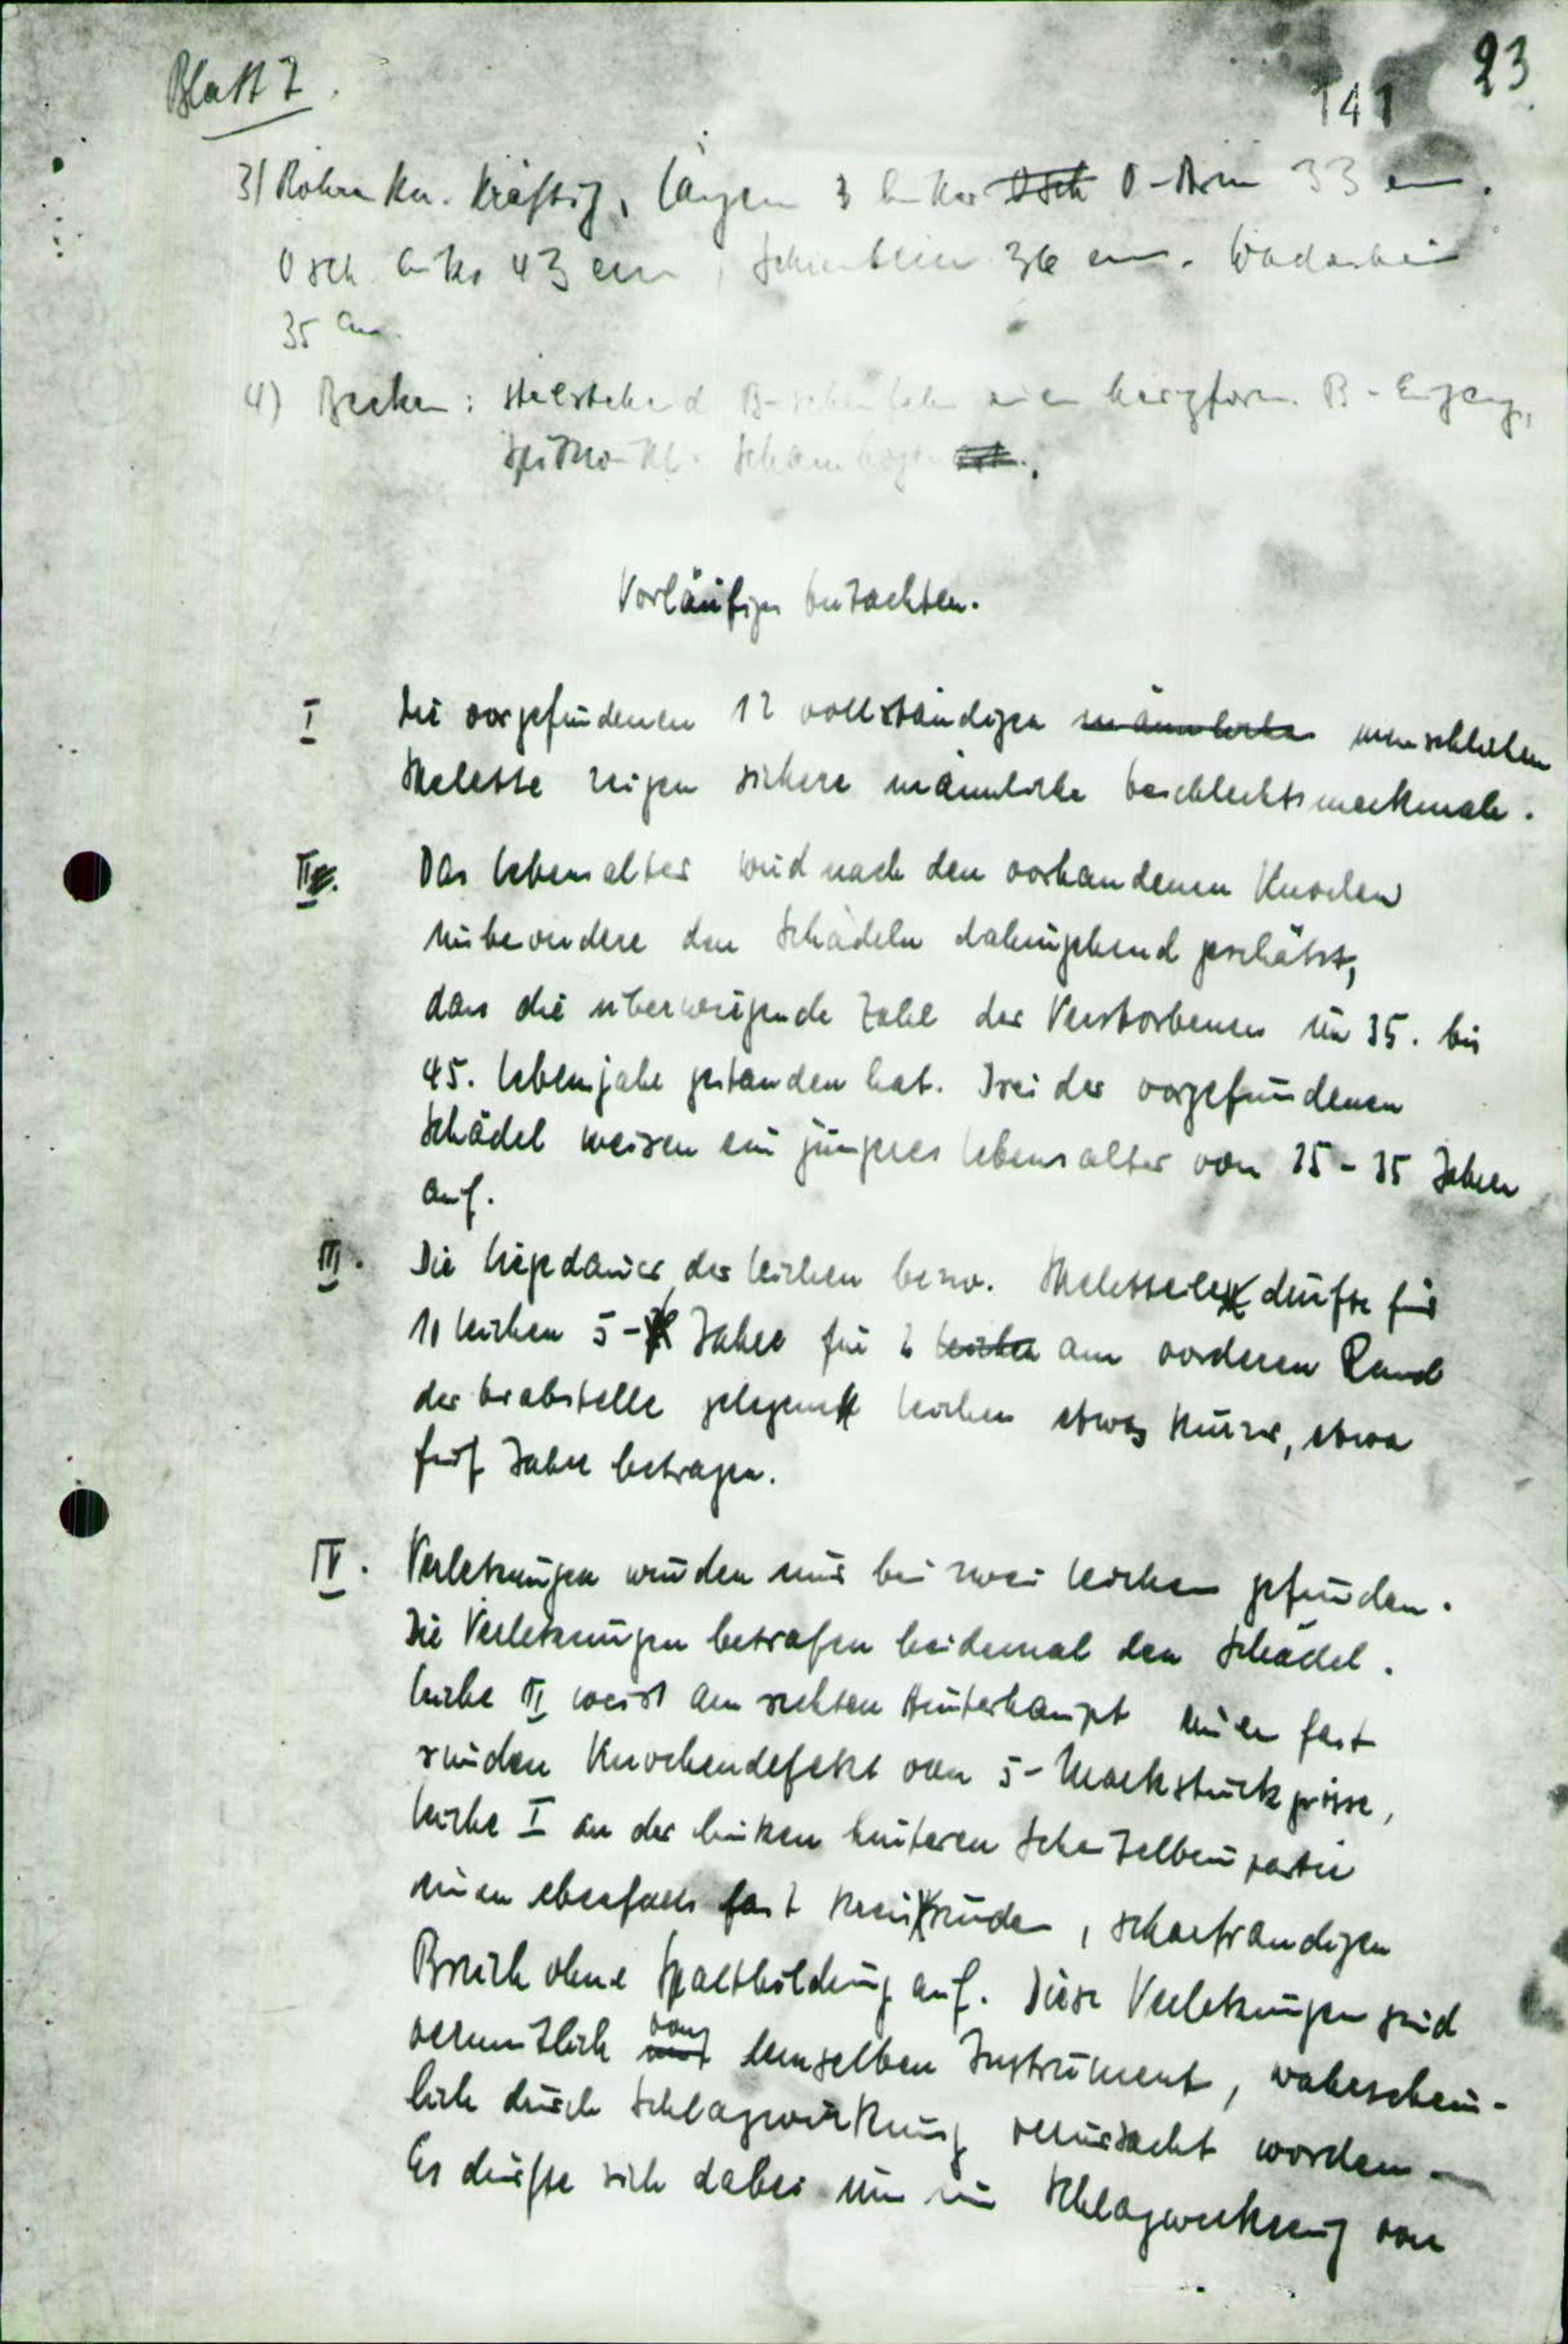 Blatt 7.
23
141
3) Röhrenkn. kräftig, Längen linker Osch O-Arm 33 cm.
Osch links 43 cm, Schienbein 36 cm. Wadenbein
35 cm.
4) Becken: steilstehend B-schaufeln herzförm. B-Eingang,
Schambogen
Vorläufiges Gutachten.
I Die vorgefundenen 12 vollständigen männlichen menschlichen
Skelette zeigen sichere männliche Geschlechtsmerkmale.
II. Das Lebensalter wird nach den vorhandenen Knochen
insbesondere den Schädeln dahingehend geschätzt,
dass die überwiegende Zahl der Verstorbenen im 35. bis
45. Lebensjahr gestanden hat. Drei der vorgefundenen
Schädel weisen ein jüngeres Lebensalter von 25-35 Jahren
auf.
III. Die Liegedauer der Leichen bezw. Skeletteile dürfte für
10 Leichen 5- Jahre für 2 Leichen am vorderen Rand
der Grabstelle gelegene Leichen etwas kürzer, etwa
fünf Jahre betragen.
IV. Verletzungen wurden nur bei zwei Leichen gefunden.
Die Verletzungen betrafen beidemal den Schädel.
Leiche II weist am rechten Hinterhaupt einen fast
runden Knochendefekt von 5-Markstückgrösse,
Leiche I an der linken hinteren Scheitelbeinpartie
einen ebenfalls fast kreisrunden, scharfrandigen
Bruch ohne Spaltbildung auf. Diese Verletzungen sind
vermutlich von demselben Instrument, wahrschein-
lich durch Schlagwirkung verursacht worden.
Es dürfte sich dabei um ein Schlagwerkzeug von